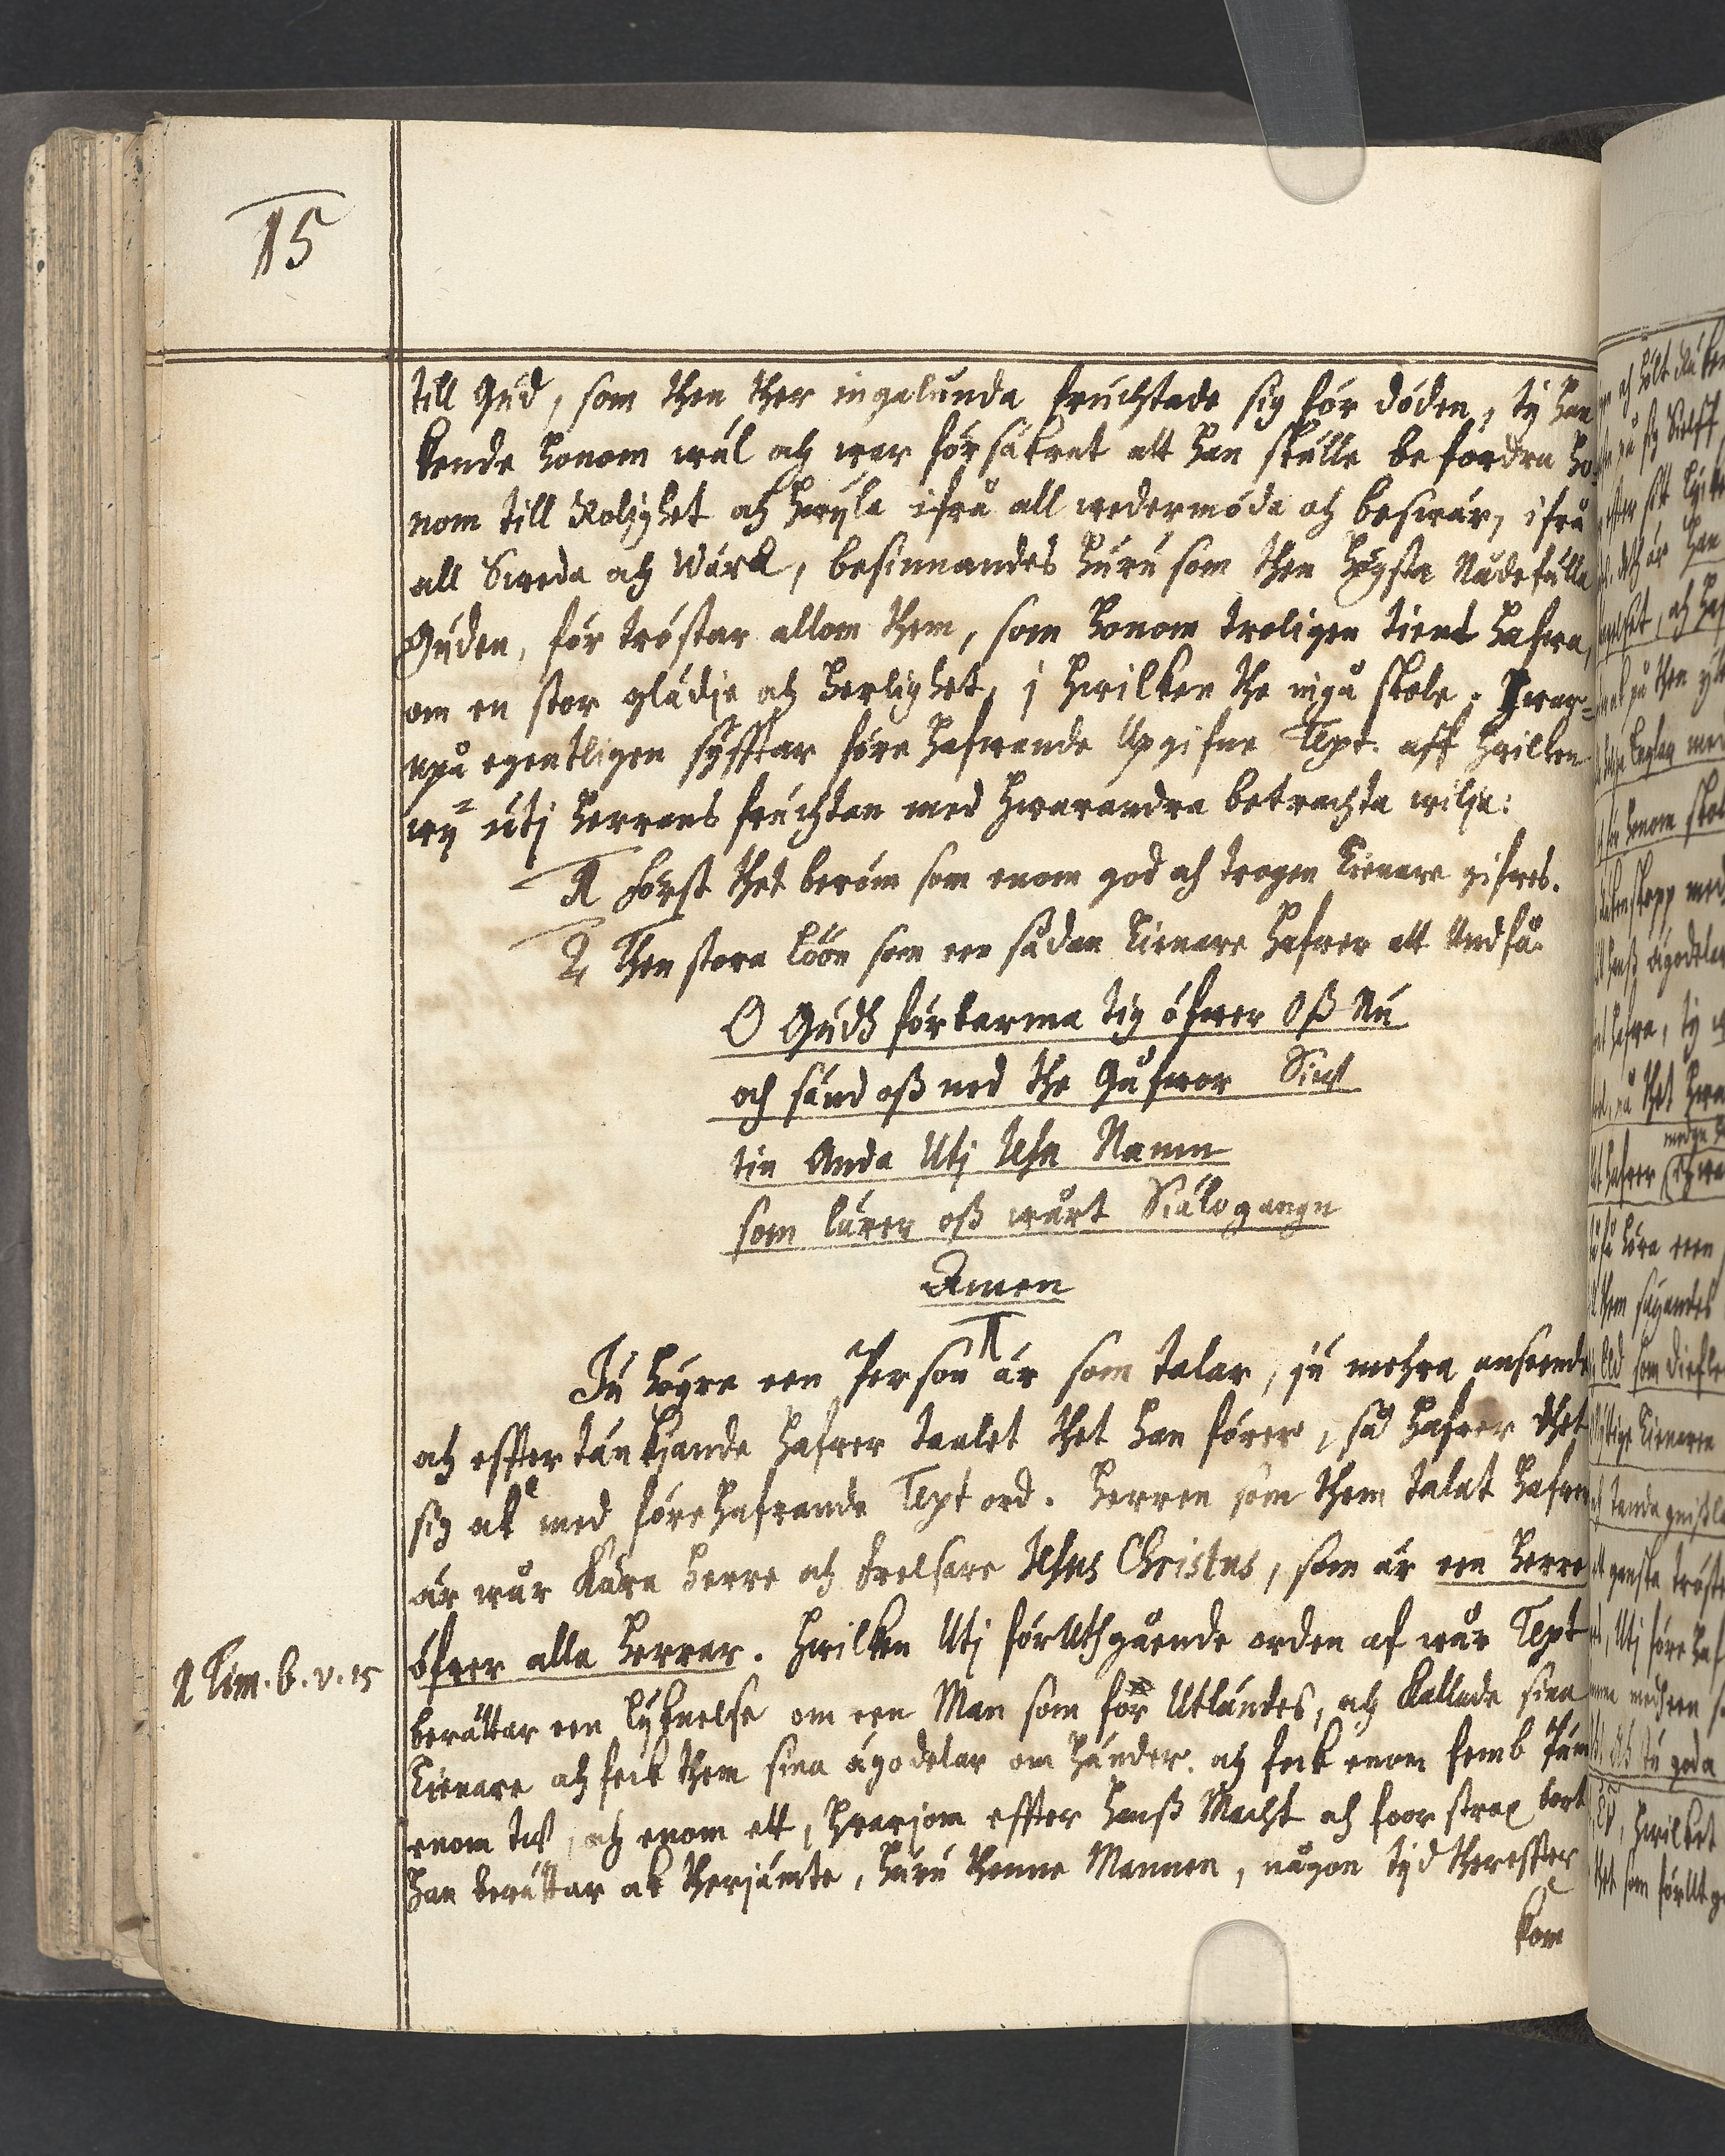 15
till Gud, som then ther ingalunda fruchtade sig för döden, ty han
kende honom wäl och war försäkrat att han skulle befordra ho-
nom till Rolighet och hwyla ifrå all wedermöda och beswär, ifrå
all Sweda och Wärk, besinnandes huru som then högsta Nådefulla
Guden, förtröstar allom them, som honom troligen tient hafwa,
om en stor glädje och herlighet, i hwilken the ingå skole. Hwar-
upå egentligen syfftar förehafwande Upgifne Text. aff hwilken
wy utj herrans fruchtan med hwarandra betrachta wilja:
1 först thet beröm som enom god och trogen tienare gifwes.
2 Then stora Löön som een sådan tienare hafwer att Undfå.
O Gudh förbarma tig öfwer oß Nu
och sänd oß ned the Gåfwor Sin
tin Anda Utj Jesu Namn
som lärer oß wårt Siälogangn
Amen
1
Ju högre een Person är som talar, ju mehra anseende
och effter tänkjande hafwer taalet thet han förer, så hafwer thet
sig ok med förehafwande Text ord. Herren som them talat hafwer
är wår Kära Herre och frelsare Jesus Christus, som är een Herre
öfwer alla Herrar. Hwilken Utj förUthgående orden af wår Text
1 Tim. 6. v. 15
berättar een lyknelse om een Man som för Utländes, och Kallade sina
tienare och feck them sina ägodelar om händer. och feck enom femb Pün
enom tw, och enom ett, hwarjom effter hanß Macht och foor strax bort
han berättar ok therjämte, huru thenne Mannen, någon tyd thereffter
kom